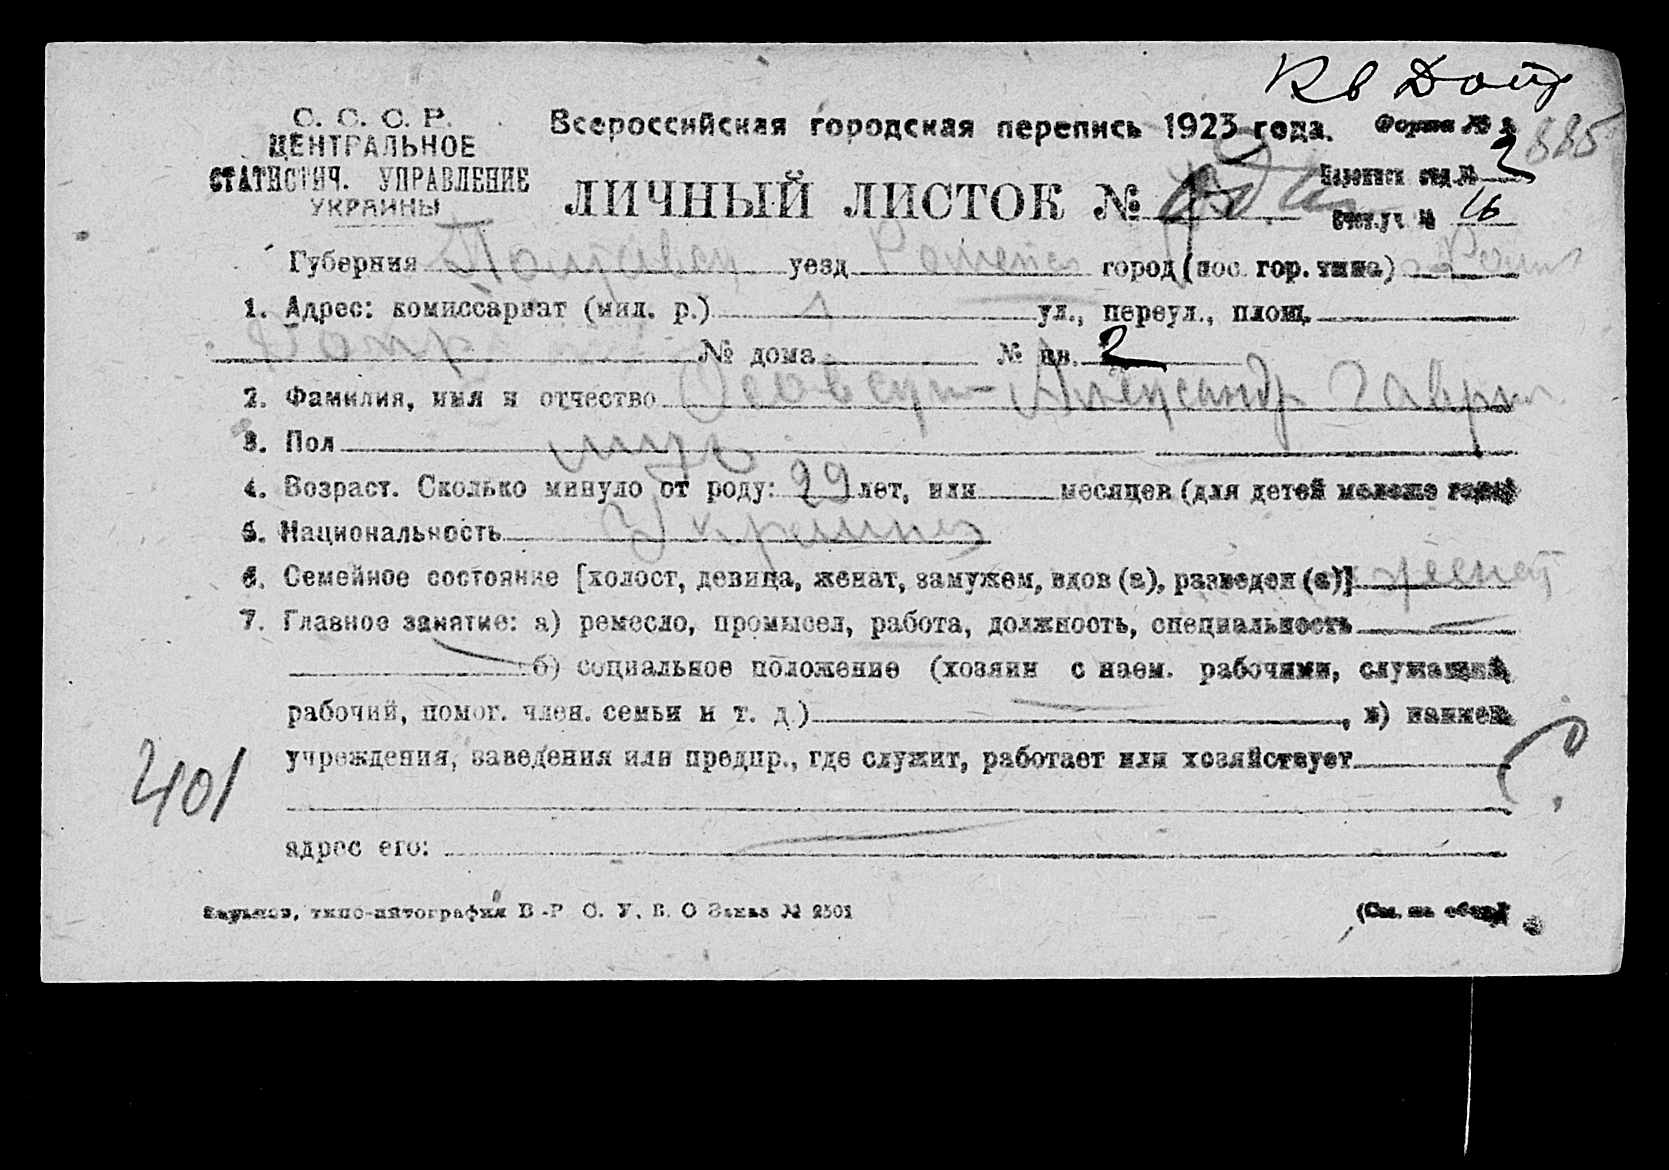 Кв Допр
С. С. С. Р.
ЦЕНТРАЛЬНОЕ
СТАТИСТИЧ. УПРАВЛЕНИЕ
УКРАИНЫ
Всероссийская городская перепись 1923 года.
Форма № 2
885
ЛИЧНЫЙ ЛИСТОК №
Переписн отд. № 2
Счет. уч. № 16
Губерния Полтавск уезд Роменск город (пос. гор. типа) Ромн
1. Адрес: комиссариат (мил. р.) 1 ул., переул., площ.
Допр № дома № кв. 2
2. Фамилия, имя и отчество Александр Гаврил
3. Пол муж
4. Возраст. Сколько минуло от роду: 29 лет, или месяцев (для детей моложе года)
5. Национальность Украинец
6. Семейное состояние [холост, девица, женат, замужем, вдов (а), разведен (а)] женат
7. Главное занятие: а) ремесло, промысел, работа, должность, специальность —
б) социальное положение (хозяин с наем. рабочими, служащий,
рабочий, помог. член. семьи и т. д.) —, в) наимен.
учреждения, заведения или предпр., где служит, работает или хозяйствует
401
адрес его: —
Харьков, типо-литография В-Р С. У. В. О Заказ № 2501
(См. на обор.)